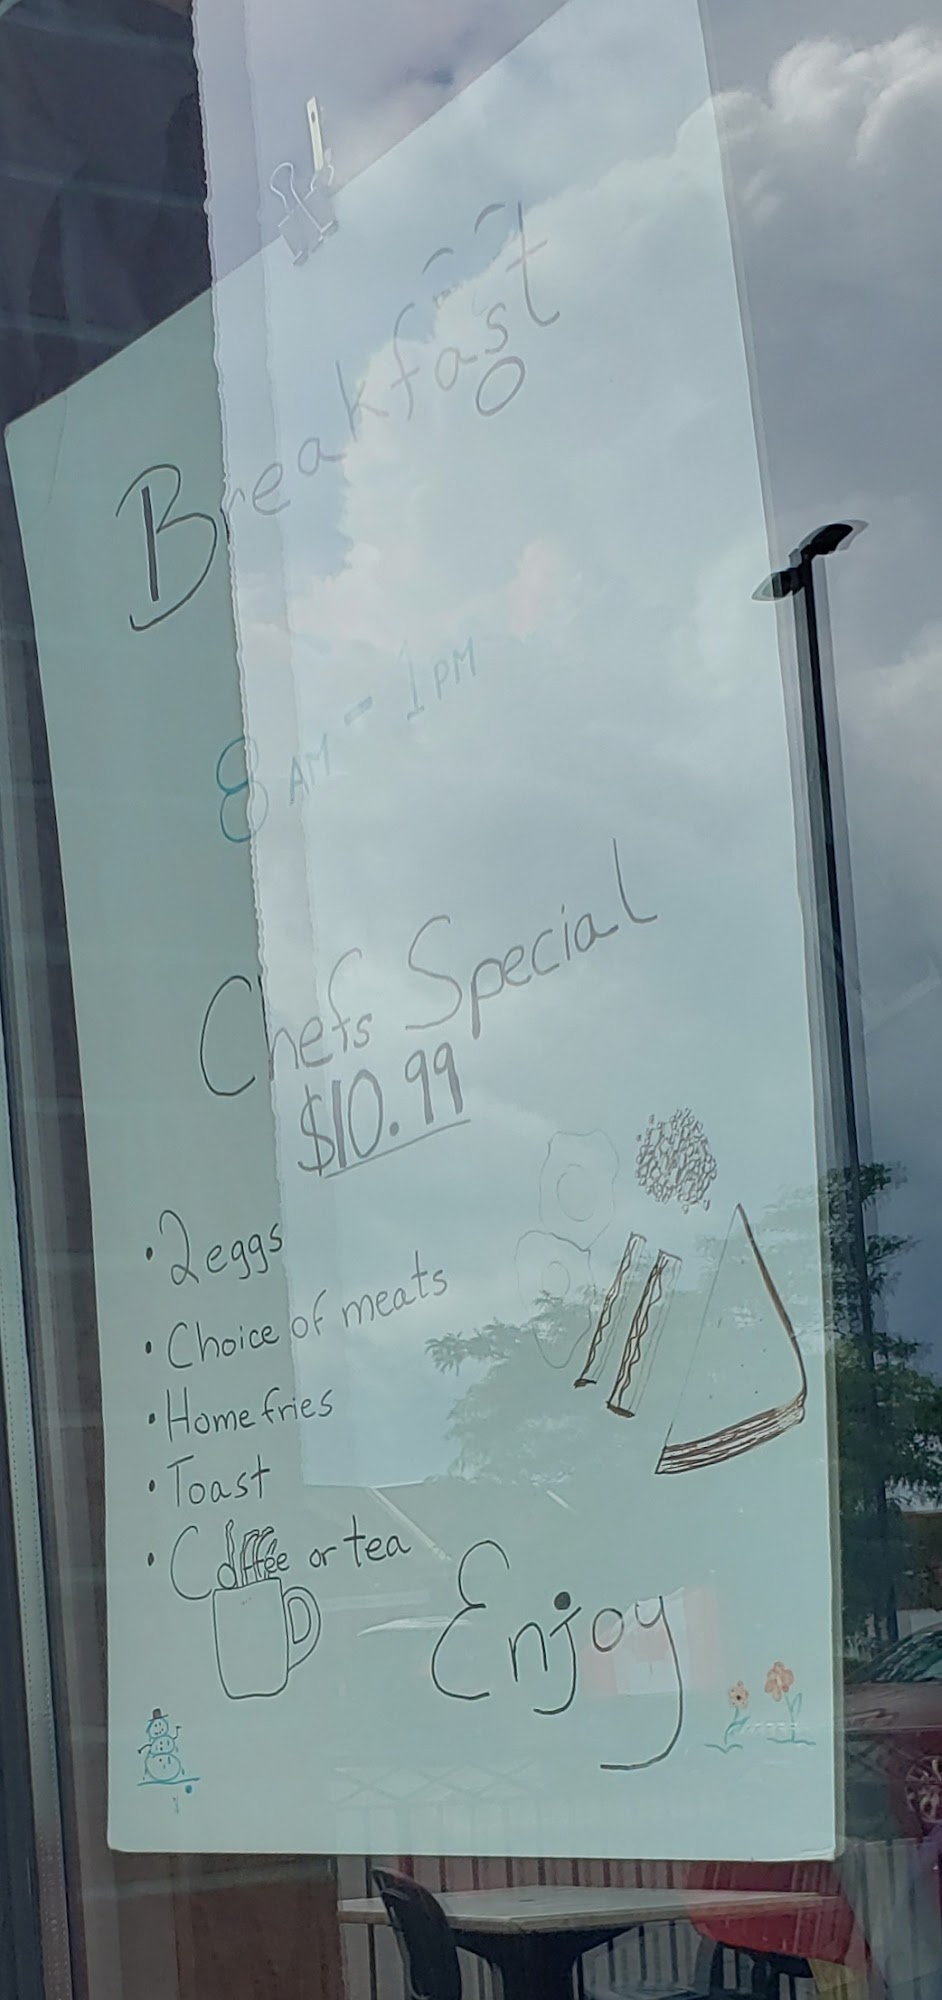 Breakfast
8 AM - 1 PM
Chefs Special
$10.99
• 2 eggs
• Choice of meats
• Home fries
• Toast
• Coffee or tea
Enjoy